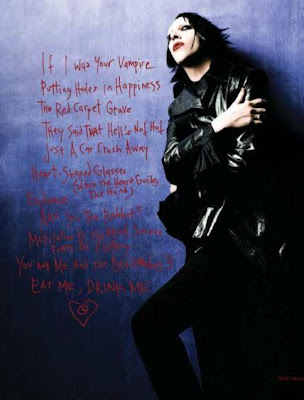 If I Was Your Vampire
Putting Holes in Happiness
The Red Carpet Grave
They Said That Hell's Not Hot
Just A Car Crash Away
Heart-Shaped Glasses
(When The Heart Guides
The Hand)
Evidence
Are You The Rabbit?
Mutilation Is The Most Sincere
Form Of Flattery
You And Me And The Devil Makes 3
EAT ME, DRINK ME